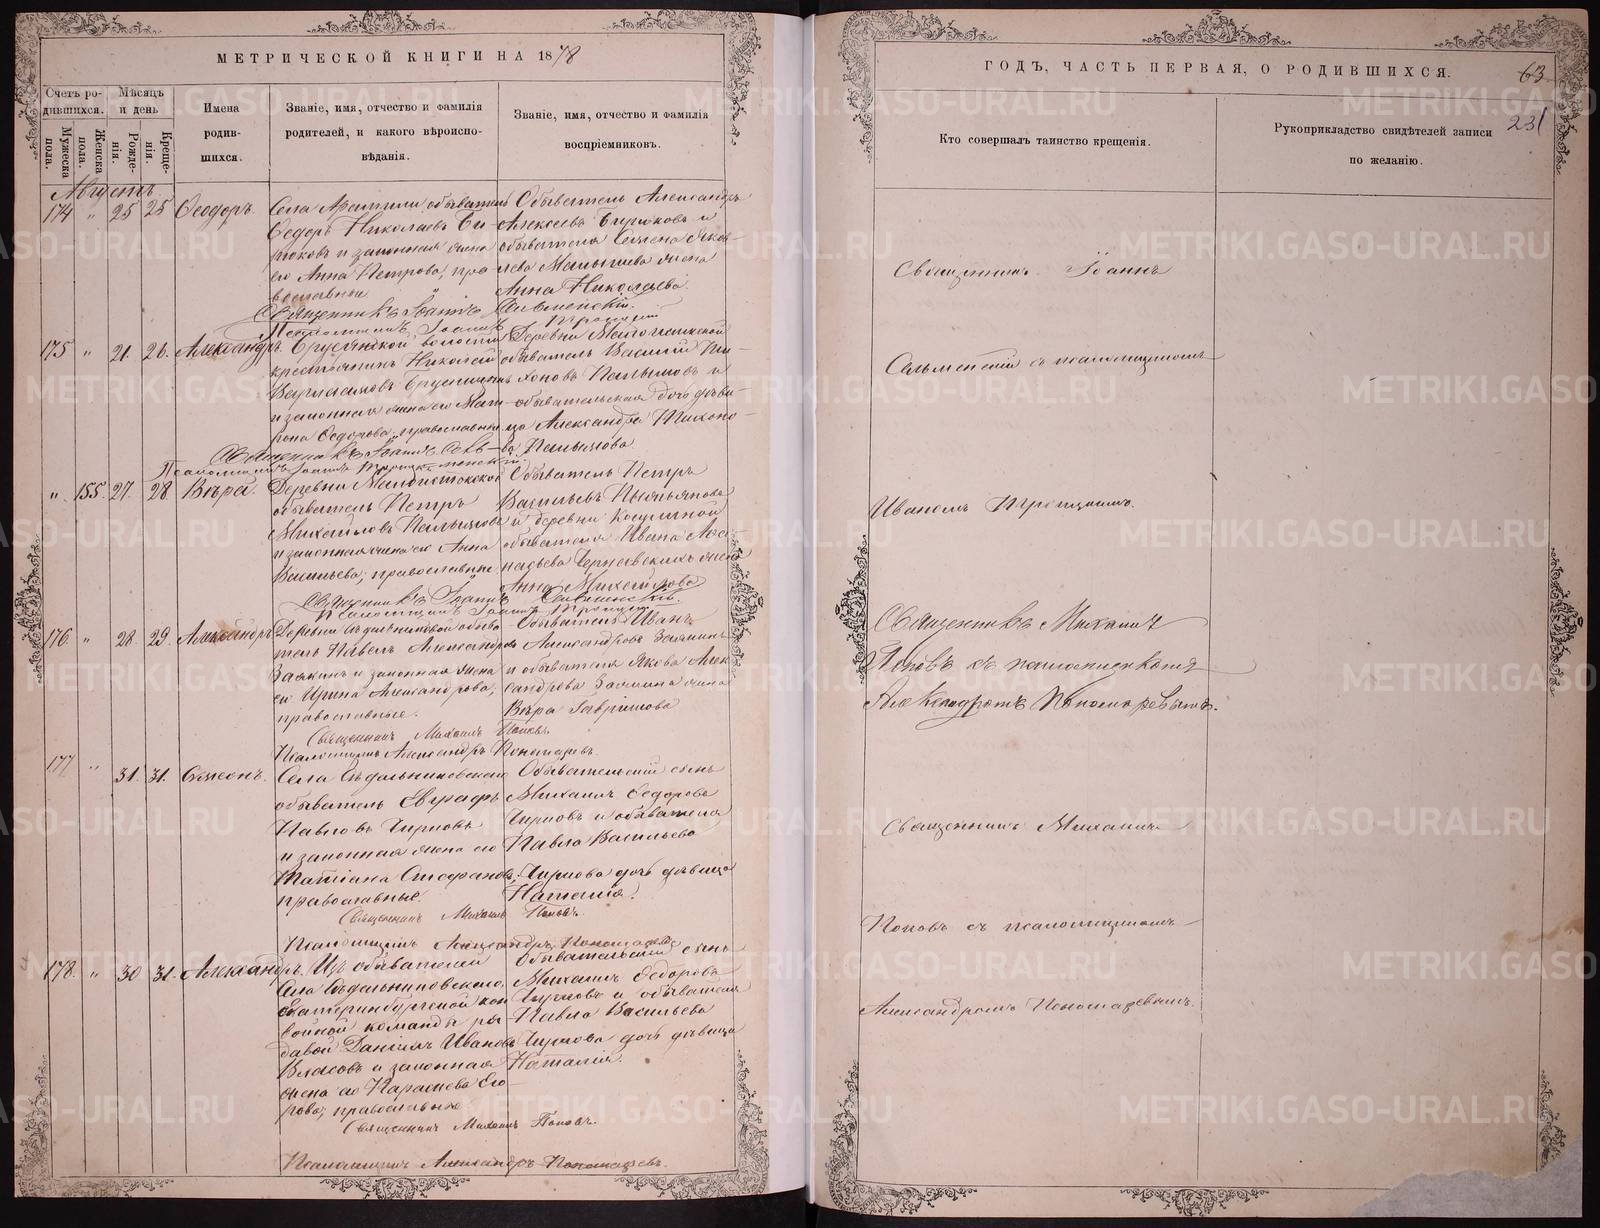 МЕТРИЧЕСКОЙ КНИГИ НА 1878
Счетъ родившихся.
Мѣсяцъ и день
Имена родившихся.
Званіе, имя, отчество и фамилія родителей, и какого вѣроисповѣданія.
Званіе, имя, отчество и фамилія воспріемниковъ.
Мужеска пола.
Женска пола.
Рожденія.
Крещенія.
Августъ
174 " 25 25 Ѳеодоръ.
Села Арамили обыватель
Ѳедоръ Николаевъ Би-
рюковъ и законная жена
его Анна Петрова, пра-
вославные
Обыватель Александръ
Алексеевъ Бирюковъ и
обывателя Семена Яков-
лева Малышева жена
Анна Николаева.
Священникъ Іоаннъ Сельменскій.
Псаломщикъ Іоаннъ Троицкій
175 " 21. 26. Александръ.
Бруснянской волости
крестьянинъ Николай
Варлаамовъ Брусницынъ
и законная жена его Мат-
рона Ѳедорова, православные
Деревни
обыватель Василій Ти-
хоновъ Палымовъ и
обывательская дочь дѣви-
ца Александра Тихоно-
ва Палымова
Священникъ Іоаннъ Сель-
менскій.
Псаломщикъ Іоаннъ Троицкій
" 155. 27. 28 Вѣра.
Деревни Малоистокской
обыватель Петръ
Михайловъ Палымовъ
и законная жена его Анна
Васильева, православные
Обыватель Петръ
Васильевъ
и деревни Косулиной
обывателя Ивана
жена
Анна Михайлова
Священникъ Іоаннъ Сельменскій.
Псаломщикъ Іоаннъ Троицкій
176 " 28. 29. Александръ
Деревни Сѣдельниковой обыва-
тель Павелъ Александровъ
Заякинъ и законная жена
его Ирина Александрова,
православные.
Обыватель Иванъ
Александровъ Заякинъ
и обывателя Якова Алек-
сандрова Заякина жена
Вѣра Гаврилова
Священникъ Михаилъ Поповъ.
Псаломщикъ Александръ Пономаревъ.
177 " 31. 31. Симеонъ.
Села Сѣдельниковскаго
обыватель Евграфъ
Павловъ Чирковъ
и законная жена его
Татіана Стефанова,
православные.
Обывательскій сынъ
Михаилъ Ѳедоровъ
Чирковъ и обывателя
Павла Васильева
Чиркова дочь дѣвица
Наталія.
Священникъ Михаилъ Поповъ.
Псаломщикъ Александръ Пономаревъ
178. " 30 31. Александръ.
Изъ обывателей
села Сѣдельниковскаго,
Екатеринбургской кон-
войной команды ря-
довой Даніилъ Ивановъ
Власовъ и законная
жена его Параскева Его-
рова, православные
Обывательскій сынъ
Михаилъ Ѳедоровъ
Чирковъ и обывателя
Павла Васильева
Чиркова дочь дѣвица
Наталія.
Священникъ Михаилъ Поповъ.
Псаломщикъ Александръ Пономаревъ.
ГОДЪ, ЧАСТЬ ПЕРВАЯ, О РОДИВШИХСЯ.
63
231
Кто совершалъ таинство крещенія.
Рукоприкладство свидѣтелей записи по желанію.
Священникъ Іоаннъ
Сельменскій съ псаломщикомъ
Иваномъ Троицкимъ.
Священникъ Михаилъ
Поповъ съ псаломщикомъ
Александромъ Пономаревымъ.
Священникъ Михаилъ
Поповъ съ псаломщикомъ
Александромъ Пономаревымъ.
METRIKI.GASO-URAL.RU